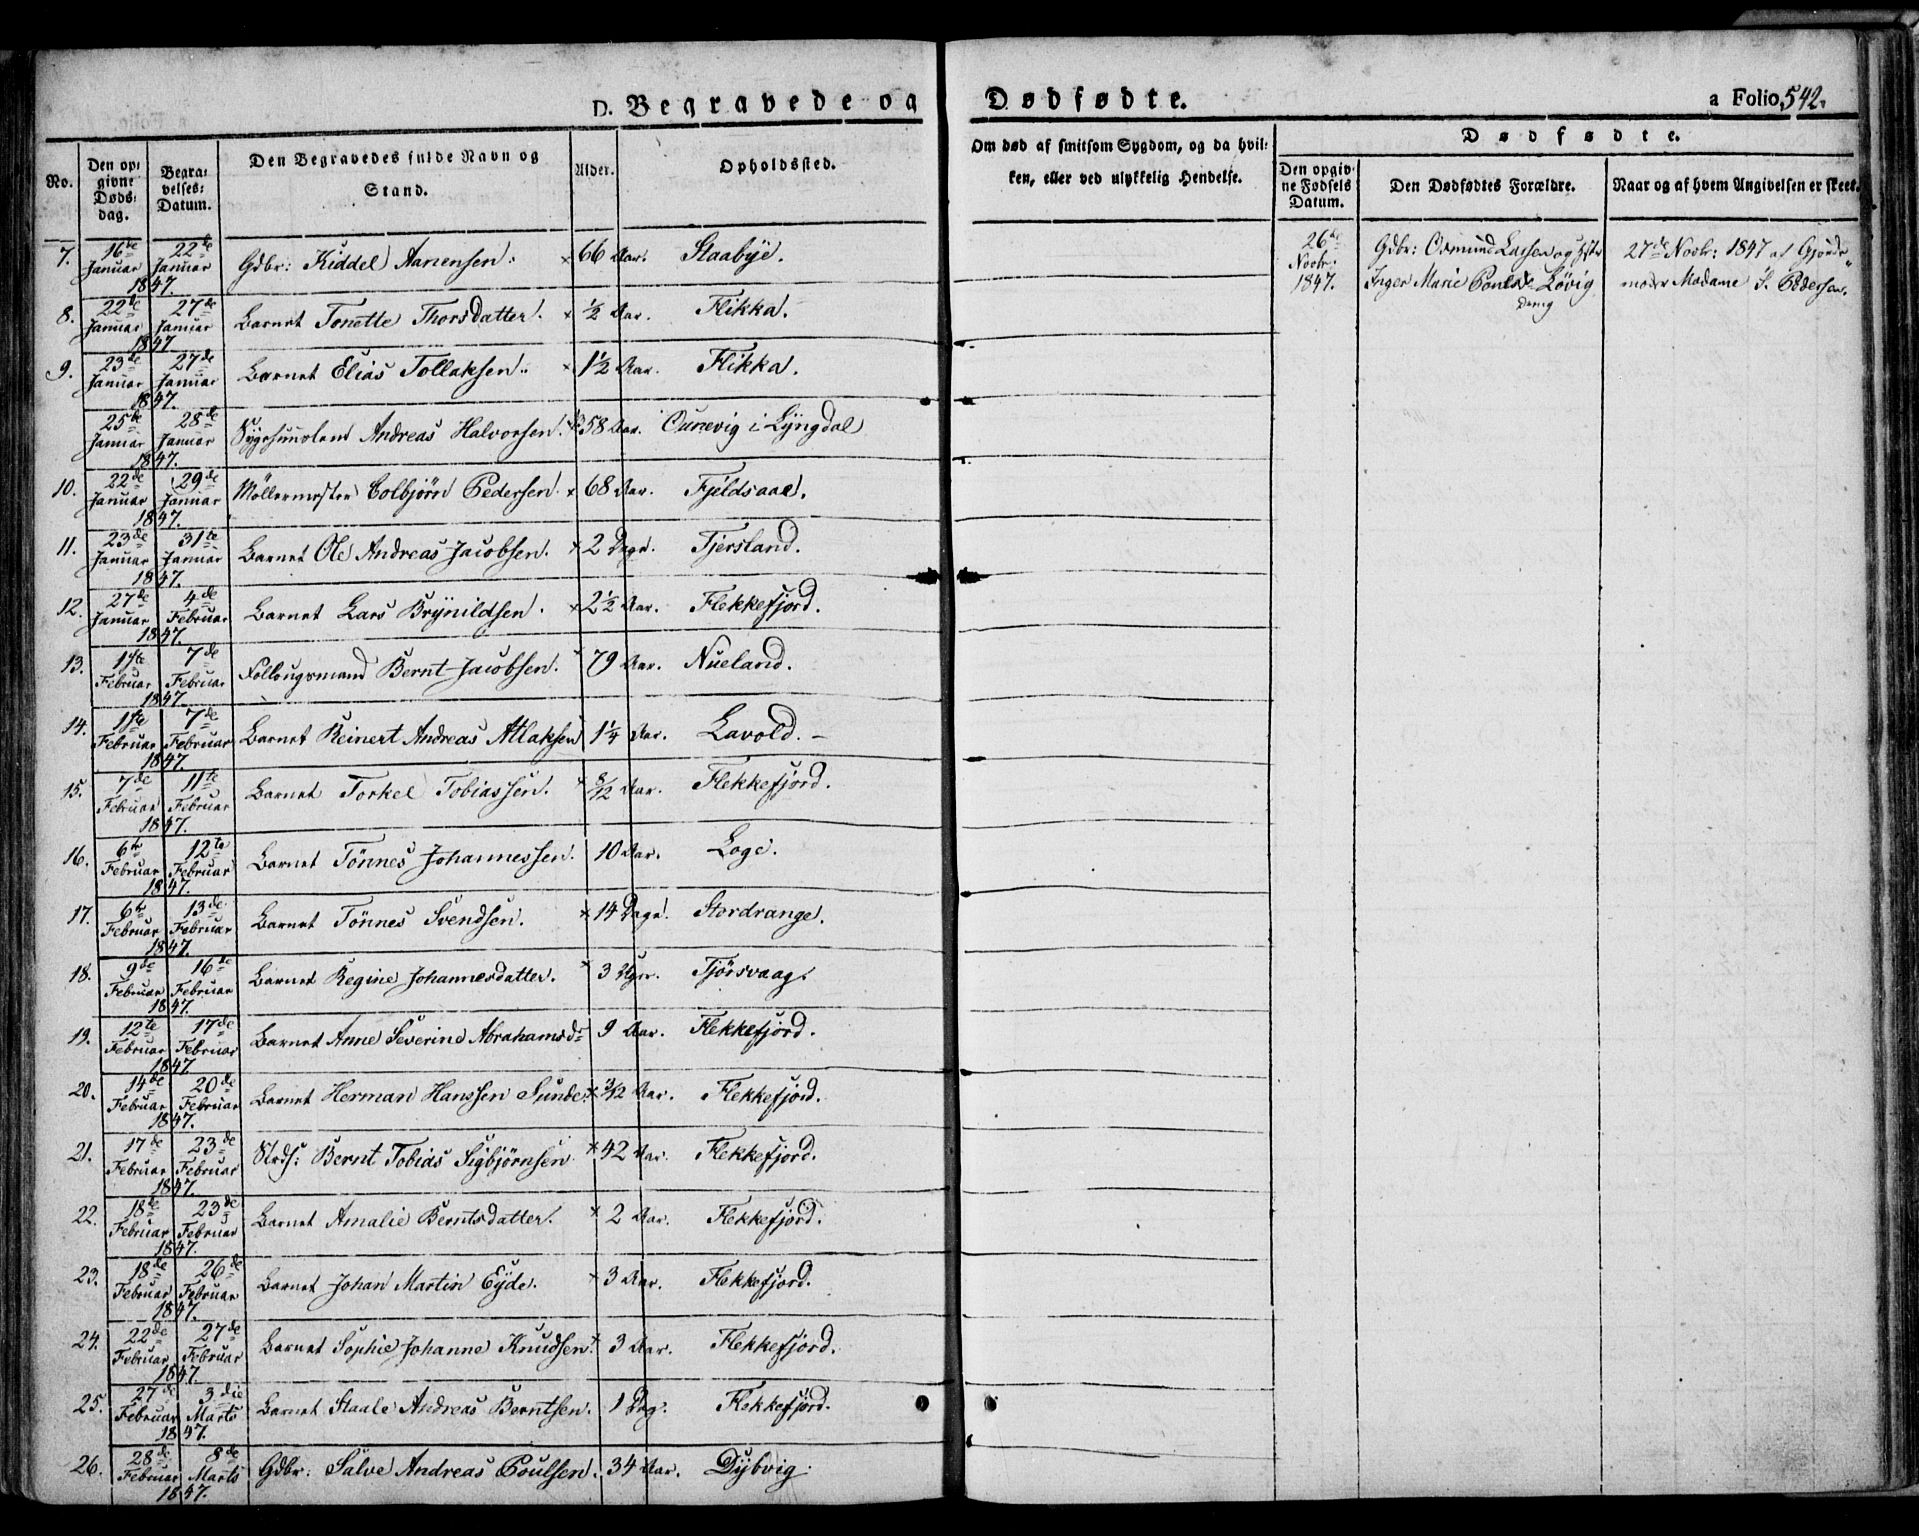 D. Begravede og Dødfødte.
a Folio 542.
No.
Den opgivne Døds:dag.
Begravelses:Datum.
Den Begravedes fulde Navn og Stand.
Alder.
Opholdssted.
Om død af smitsom Sygdom, og da hvilken, eller ved ulykkelig Hendelse.
Dødfødte.
Den opgivne Fødsels Datum.
Den Dødfødtes Forældre.
Naar og af hvem Angivelsen er skeet.
7. 16de Januar 22de Januar 1847. Gdbr: Kiddel Aanensen. × 66 Aar. Staabye.
8. 22de Januar 27de Januar 1847 Barnet Tonette Thorsdatter. × ½ Aar. Flikka.
9. 23de Januar 27de Januar 1847. Barnet Elias Tollaksen. × 1½ Aar. Flikka.
25de Januar 28de Januar 1847. Andreas Halvorsen. 58 Aar. i Lyngdal
10. 22de Januar 29de Januar 1847. Møllermester Colbjørn Pedersen × 68 Aar. Fjeldsaae.
11. 23de Januar 31te Januar 1847. Barnet Ole Andreas Jacobsen. × 2 Dage. Tjersland.
12. 27de Januar 4de Februar 1847. Barnet Lars Brynildsen. × 2½ Aar. Flekkefjord.
13. 1ste Februar 7de Februar 1847. Follougsmand Bernt Jacobsen. × 79 Aar. Nueland.
14. 1ste Februar 7de Februar 1847. Barnet Reinert Andreas Atlaksen 1¼ Aar. Lavold. –
15. 7de Februar 11te Februar 1847. Barnet Torkel Tobiassen. × 8/12 Aar. Flekkefjord.
16. 6te Februar 12te Februar 1847. Barnet Tönnes Johannessen. 10 Aar. Loge.
17. 6te Februar 13de Februar 1847. Barnet Tönnes Svendsen. × 14 Dage. Stordrange.
18. 9de Februar 16de Februar 1847. Barnet Regine Johannesdatter. × 3 Uger. Tjörsvaag.
19. 12te Februar 17de Februar 1847 Barnet Anne Severine Abrahamsd: 9 Aar. Flekkefjord.
20. 14de Februar 20de Februar 1847. Barnet Herman Hanssen Sunde. × 3/12 Aar. Flekkefjord.
21. 17de Februar 23de Februar 1847. Strds: Bernt Tobias Sigbjørnsen × 42 Aar. Flekkefjord.
22. 18de Februar 23de Februar 1847. Barnet Amalie Berntsdatter. × 2 Aar. Flekkefjord.
23. 18de Februar 26de Februar 1847. Barnet Johan Martin Eyde. × 3 Aar. Flekkefjord.
24. 22de Februar 27de Februar 1847. Barnet Sophie Johanne Knudsen. × 3 Aar. Flekkefjord.
25. 27de Februar 3die Marts 1847. Barnet Staale Andreas Berntsen. 1 Dag. Flekkefjord.
26. 28de Februar 8de Marts 1847. Gdbr: Salve Andreas Poulsen. 34 Aar. Dybvig.
26de Novbr: 1847. Gdbr: Osmund Larsen og Inger Marie Løvig
27de Novbr: 1847 af Gjordemoder Madame S. Pedersen.